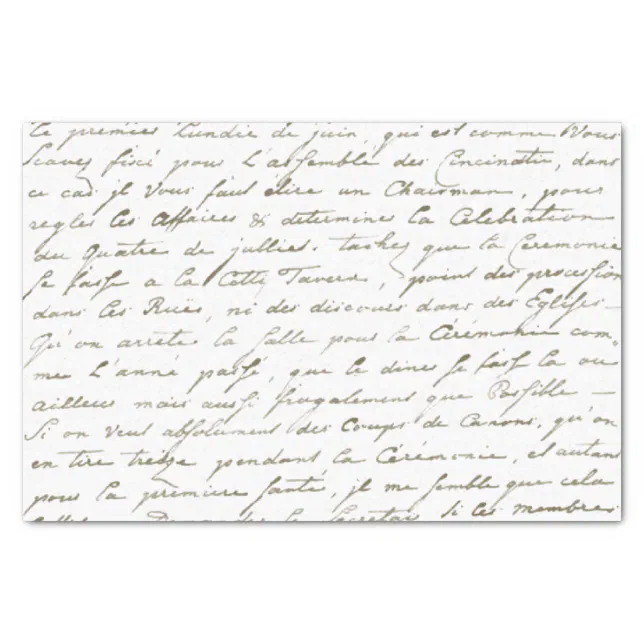 le premier Lundie de juin, qui est comme Vous
scavez fixé pour L'assemblé des Cincinatie, dans
ce cas jl Vous faut élire un Chairman, pour
regler les affaires & determiner la Celebration
du Quatre de jullier. tachez que la Ceremonie
se fasse a la Citti Tavern, point des procession
dans les Rües, ni des discours dans des Eglises –
Qu'on arrete la salle pour la Cérémonie com=
me L'anné passé, que le diner se fasse la ou
ailleur mais aussi frugalement que Possible –
Si on veut absolument des Coups de Canons, qu'on
en tire treize pendant la Cérémonie, et autant
pour la premiere santé, jl me semble que cela
Demander le Secretair Si les membres